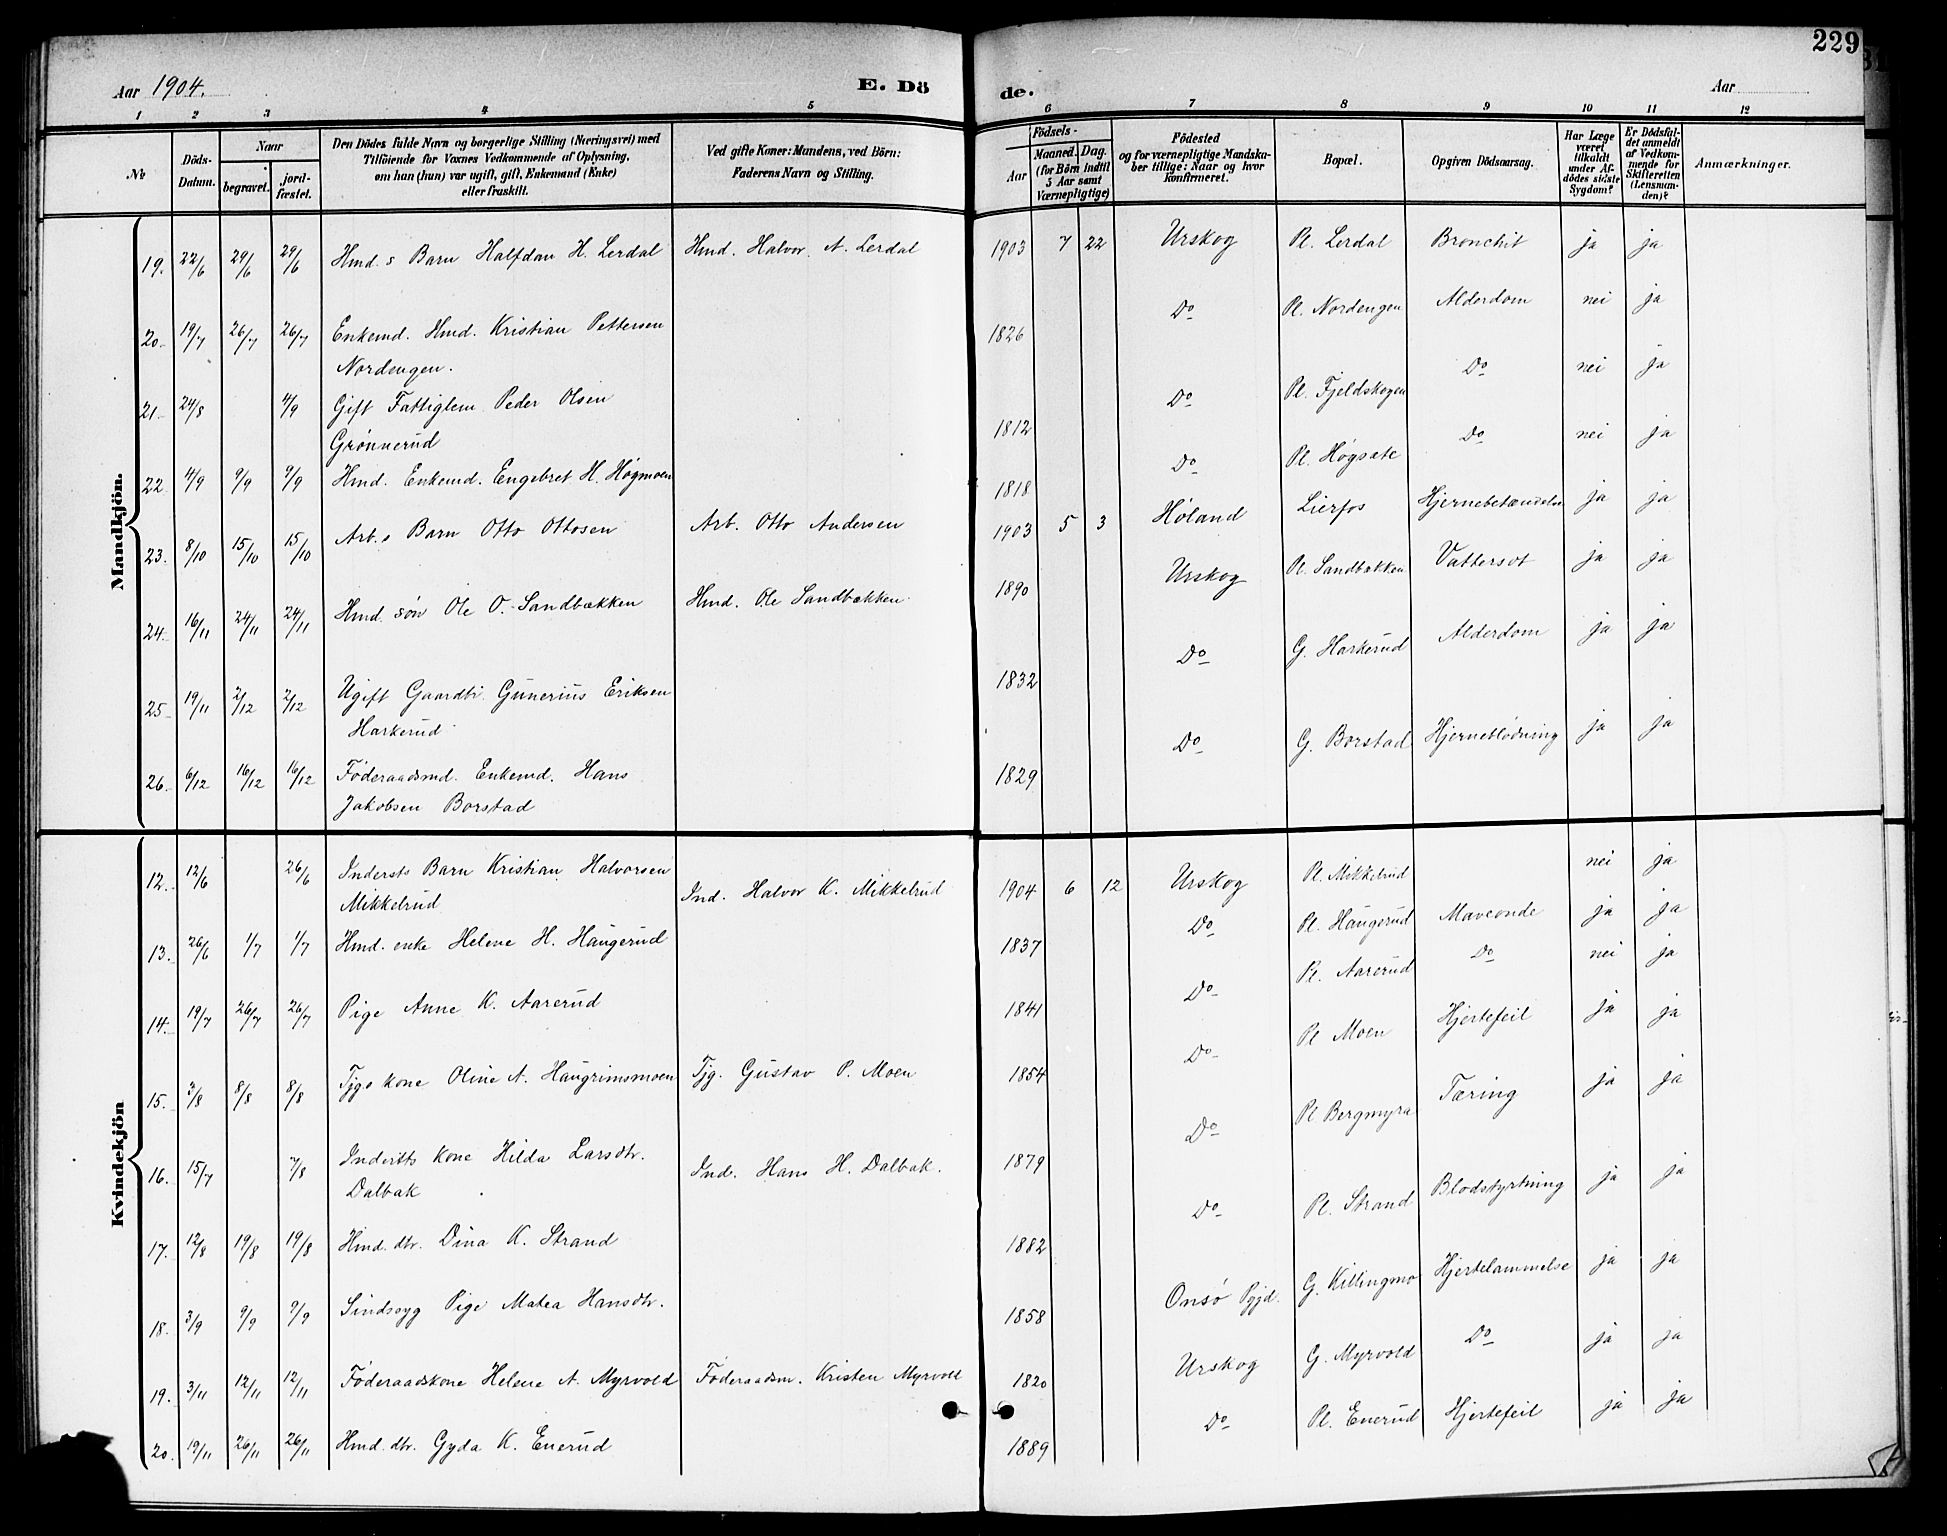 229
Aar 1904.
E. Dö
de.
Aar
1 2 3 4 5 6 7 8 9 10 11 12
No
Döds-Datum.
Naar
begravet.
jord-fæstet.
Den Dödes fulde Navn og borgerlige Stilling (Næringsvei) med
Tilföiende for Voxnes Vedkommende af Oplysning,
om han (hun) var ugift, gift, Enkemand (Enke)
eller fraskilt.
Ved gifte Koner: Mandens, ved Börn:
Faderens Navn og Stilling.
Födsels-
Aar
Maaned. Dag.
(for Börn indtil
5 Aar samt
Værnepligtige)
Födested
og for værnepligtige Mandska-
ber tillige: Naar og hvor
konfirmeret.
Bopæl.
Opgiven Dödsaarsag.
Har Læge
været
tilkaldt
under Af-
dödes sidste
Sygdom?
Er Dödsfal-
det anmeldt
af Vedkom-
mende for
Skifteretten
(Lensman-
den)?
Anmærkninger.
Mandkjön.
19. 22/6 29/6 29/6 Hmd.s Barn Halfdan H. Lerdal Hmd. Halvor A. Lerdal 1903 7 22 Urskog Pl. Lerdal Bronchit ja ja
20. 19/7 26/7 26/7 Enkemd. Hmd. Kristian Pettersen 1826 Do Pl. Nordengen Alderdom nei ja
Nordengen.
21. 24/8 4/9 Gift Fattiglem Peder Olsen 1812 Do Pl. Fjeldskogen Do nei ja
Grønnerud
22. 4/9 9/9 9/9 Hmd. Enkemd. Engebret H. Høgmoen 1818 Do Pl. Høgsete Do nei ja
23. 8/10 15/10 15/10 Arb.s Barn Otto Ottosen Arb. Otto Andersen 1903 5 3 Høland Lierfos Hjernebetændelse ja ja
24. 16/11 24/11 24/11 Hmd. søn Ole O. Sandbækken Hmd. Ole Sandbækken 1890 Urskog Pl. Sandbækken Vattersot ja ja
25. 19/11 2/12 2/12 Ugift Gaardbr. Gunerius Eriksen 1832 Do G. Harkerud Alderdom ja ja
Harkerud
26. 6/12 16/12 16/12 Føderaadsmd. Enkemd. Hans 1829 Do G. Borstad Hjerneblödning ja ja
Jakobsen Borstad
Kvindekjön
12. 12/6 26/6 Indersts Barn Kristian Halvorsen Ind. Halvor K. Mikkelrud 1904 6 12 Urskog Pl. Mikkelrud nei ja
Mikkelrud
13. 26/6 1/7 1/7 Hmd. enke Helene H. Haugerud 1837 Do Pl. Haugerud Maveonde ja ja
14. 19/7 26/7 26/7 Pige Anne K. Aarerud 1841 Do Pl. Aarerud Do nei ja
15. 3/8 8/8 8/8 Tjgs kone Oline A. Haugrimsmoen Tjg. Gustav P. Moen 1854 Do Pl Moen Hjertefeil ja ja
16. 15/7 7/8 Indersts kone Hilda Larsdtr. Ind. Hans H. Dalbak. 1879 Do Pl. Bergmyra Tæring ja ja
Dalbak
17. 12/8 19/8 19/8 Hmd. dtr. Dina K. Strand 1882 Do Pl. Strand Blodstyrtning ja ja
18. 3/9 9/9 9/9 Sindssyg Pige Matea Hansdtr. 1858 Onsø Pgjd. G. Killingmo Hjertelammelse ja ja
19. 3/11 12/11 12/11 Føderaadskone Helene A. Myrvold Føderaadsm. Kristen Myrvold 1820 Urskog G. Myrvold Do ja ja
20. 19/11 26/11 26/11 Hmd. dtr. Gyda K. Enerud 1889 Do Pl. Enerud Hjertefeil ja ja